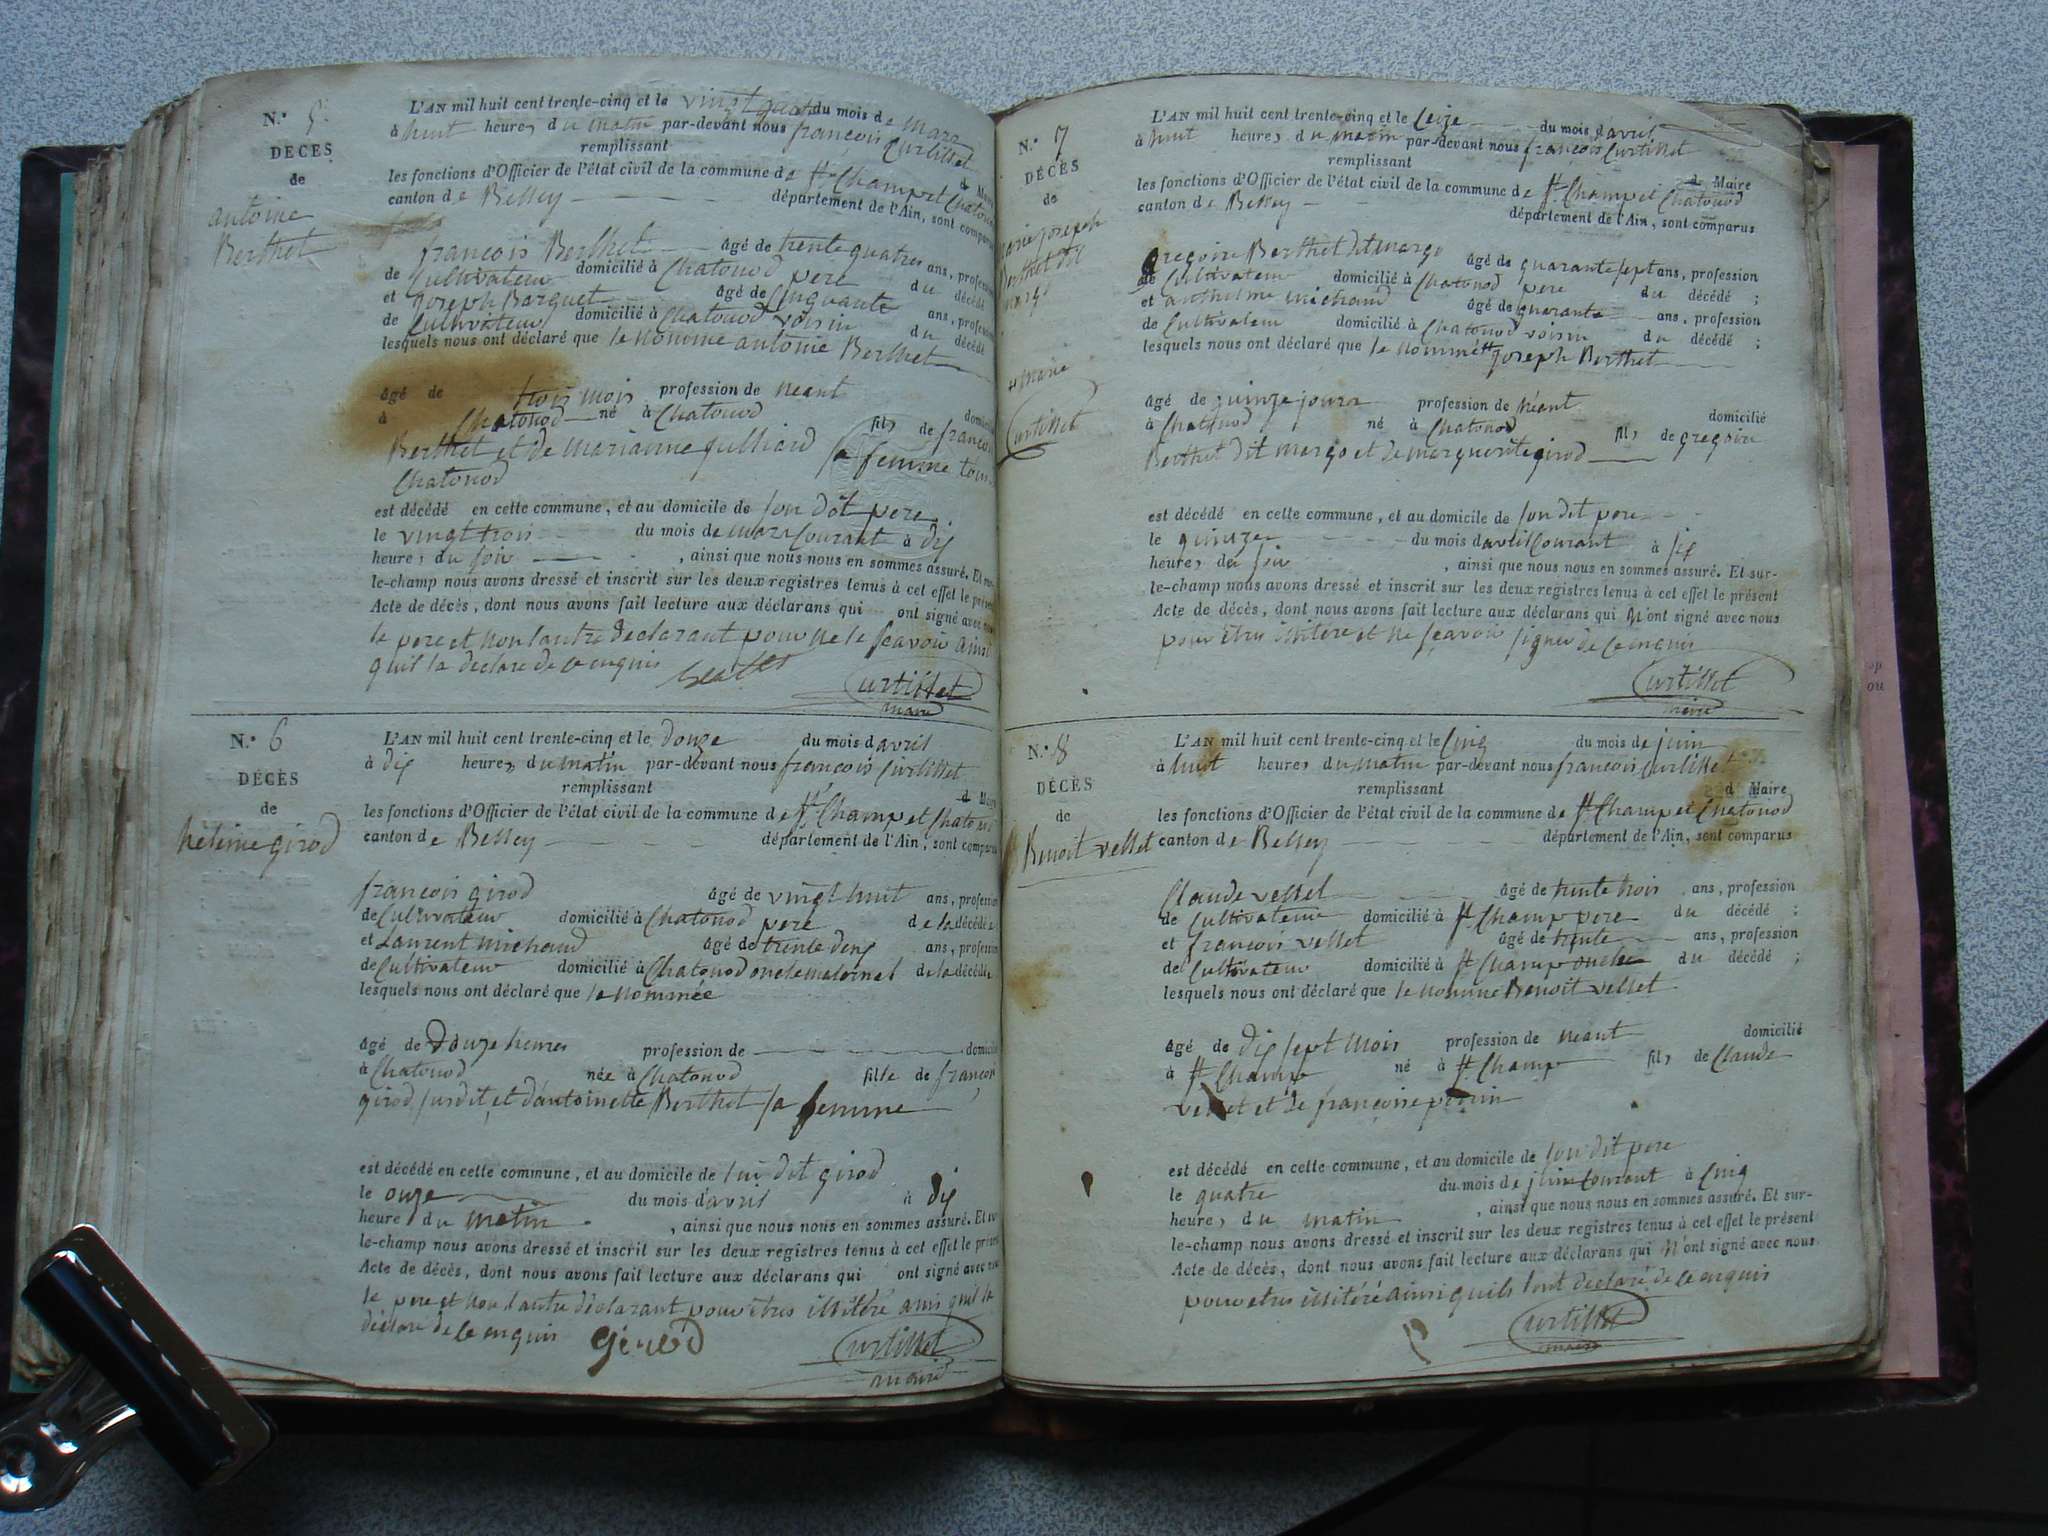 N.° 5
DÉCÈS
de
antoine
Berthet
L'AN mil huit cent trente-cinq et le vingt quatre du mois de mars
à huit heures du matin par-devant nous françois Curtillet
remplissant
les fonctions d'Officier de l'état civil de la commune de St Champ et Chatonod
canton de Belley département de l'Ain, sont comparus
françois Berthet âgé de trente quatres ans, profession
de Cultivateur domicilié à Chatonod pere du décédé
et joseph Barquet âgé de Cinquante ans, profession
de Cultivateur domicilié à Chatonod voisin du décédé
lesquels nous ont déclaré que le nommé antoine Berthet
âgé de trois mois profession de néant
à Chatonod né à Chatonod fils de françois
Berthet et de marianne julliard sa femme
Chatonod
est décédé en cette commune, et au domicile de son dit pere
le vingt trois du mois de mars Courant à dix
heures du soir, ainsi que nous nous en sommes assuré. Et sur-
le-champ nous avons dressé et inscrit sur les deux registres tenus à cet effet le présent
Acte de décès, dont nous avons fait lecture aux déclarans qui ont signé avec nous
le pere et non lautre declarant pour ne le scavoir ainsi
quil la declare de ce enquis
Curtillet
maire
N.° 6
DÉCÈS
de
héleine girod
L'AN mil huit cent trente-cinq et le douze du mois d'avril
à dix heures du matin par-devant nous françois Curtillet
remplissant
d Maire
les fonctions d'Officier de l'état civil de la commune de St Champ et Chatonod
canton de Belley département de l'Ain, sont comparus
françois girod âgé de vingt huit ans, profession
de Cultivateur domicilié à Chatonod pere de la décédée
et Laurent michaud âgé de trente deux ans, profession
de Cultivateur domicilié à Chatonod oncle maternel de la décédée
lesquels nous ont déclaré que la nommée
âgé de Douze heures profession de domicilié
à Chatonod née à Chatonod fille de françois
girod susdit et d'antoinette Berthet sa femme
est décédé en cette commune, et au domicile de lui dit girod
le onze du mois d'avril à dix
heure du matin, ainsi que nous nous en sommes assuré. Et sur-
le-champ nous avons dressé et inscrit sur les deux registres tenus à cet effet le présent
Acte de décès, dont nous avons fait lecture aux déclarans qui ont signé avec nous
le pere et non lautre déclarant pour etres illitéré ainsi quil la
déclare de ce enquis
Curtillet
maire
N.° 7
DÉCÈS
de
marie joseph
Berthet dit
margo
# marie
Curtillet
L'AN mil huit cent trente-cinq et le seize du mois d'avril
à huit heures du matin par-devant nous françois Curtillet
remplissant
d Maire
les fonctions d'Officier de l'état civil de la commune de St Champ et Chatonod
canton de Belley département de l'Ain, sont comparus
gregoire Berthet dit margo âgé de quarante sept ans, profession
de Cultivateur domicilié à Chatonod pere du décédé ;
et anthelme michaud âgé de quarante ans, profession
de Cultivateur domicilié à Chatonod voisin du décédé ;
lesquels nous ont déclaré que le nommé # joseph Berthet
âgé de quinze jours profession de néant domicilié
à Chatonod né à Chatonod fils de gregoire
Berthet dit margo et de marguerite girod
est décédé en cette commune, et au domicile de son dit pere
le quinze du mois d'avril Courant à six
heures du soir, ainsi que nous nous en sommes assuré. Et sur-
le-champ nous avons dressé et inscrit sur les deux registres tenus à cet effet le présent
Acte de décès, dont nous avons fait lecture aux déclarans qui n'ont signé avec nous
pour etres illitéré et ne scavoir signer de ce enquis
Curtillet
maire
N.° 8
DÉCÈS
de
Benoit vellet
L'AN mil huit cent trente-cinq et le Cinq du mois de juin
à huit heures du matin par-devant nous françois Curtillet
remplissant
d Maire
les fonctions d'Officier de l'état civil de la commune de St Champ et Chatonod
canton de Belley département de l'Ain, sont comparus
Claude vellet âgé de trente trois ans, profession
de Cultivateur domicilié à St Champ pere du décédé ;
et françois vellet âgé de trente ans, profession
de Cultivateur domicilié à St Champ oncle du décédé ;
lesquels nous ont déclaré que le nommé Benoit vellet
âgé de dix sept mois profession de néant domicilié
à St Champ né à St Champ fils de Claude
vellet et de françoise perrin
est décédé en cette commune, et au domicile de son dit pere
le quatre du mois de juin Courant à Cinq
heures du matin, ainsi que nous nous en sommes assuré. Et sur-
le-champ nous avons dressé et inscrit sur les deux registres tenus à cet effet le présent
Acte de décès, dont nous avons fait lecture aux déclarans qui n'ont signé avec nous
pour etres illitéré ainsi quils l'ont declaré de ce enquis
Curtillet
maire
op
ou